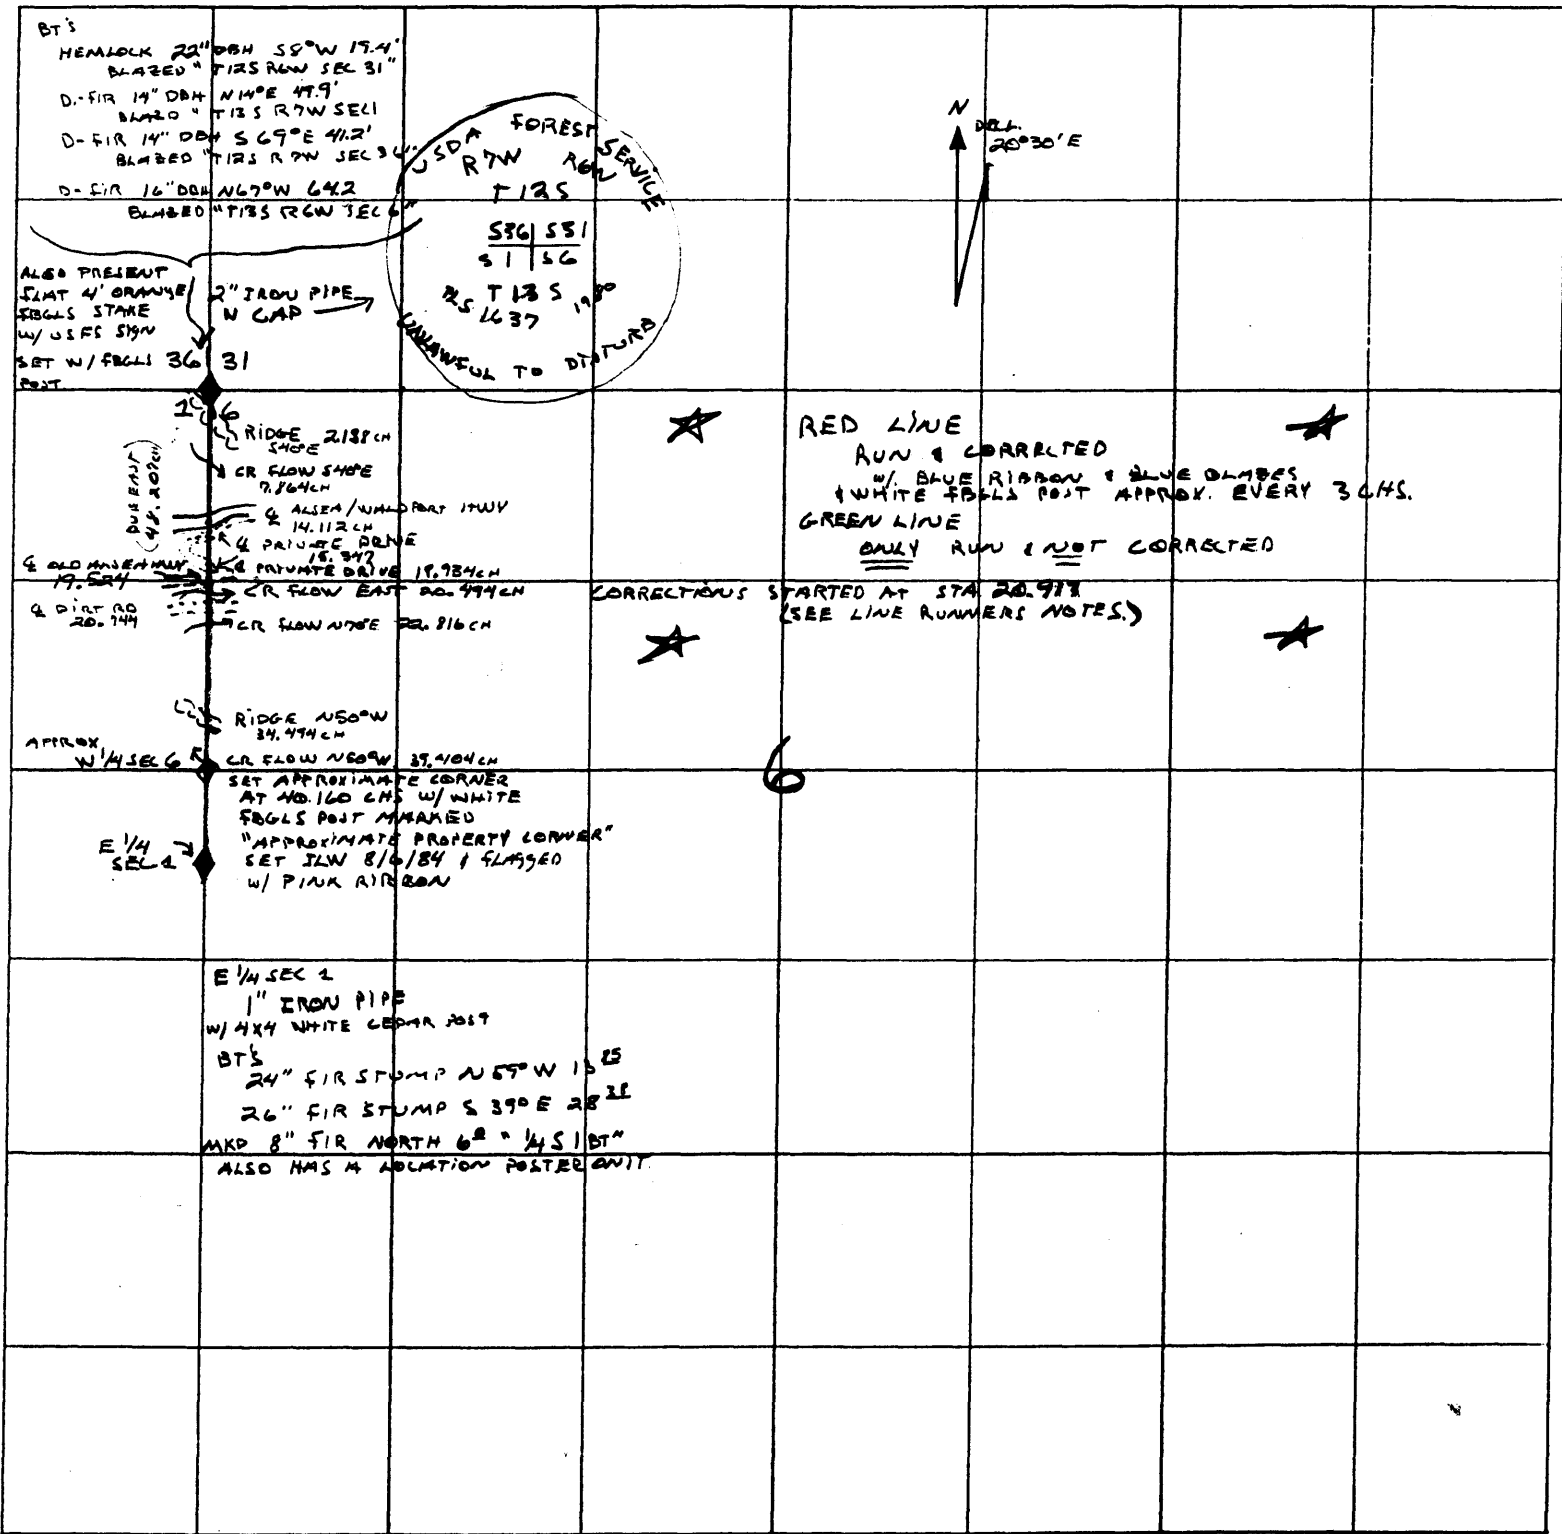 BT's
HEMLOCK 22" DBH S8°W 19.4'
BLAZED "T12S R6W SEC 31"
D.-FIR 14" DBH N14°E 49.9'
BLAZED "T13S R7W SEC1
D-FIR 14" DBH S69°E 41.2'
BLAZED "T12S R7W SEC 36"
D-FIR 16" DBH N67°W 64.2
BLAZED "T13S R6W SEC 6"
USDA FOREST SERVICE
R7W R6W
T12S
S36 S31
S1 S6
T13S
1637 1980
UNLAWFUL TO DISTURB
N
DECL.
20°30'E
ALSO PRESENT
FLAT 4' ORANGE
FBGLS STAKE
W/ USFS SIGN
SET W/ FBGLS
POST
2" IRON PIPE
W CAP
36 31
1 6
RIDGE 2.188 CH
S40°E
CR FLOW S40°E
7.864 CH
DUE EAST
(48.207 CH)
℄ ALSEA/WALDPORT HWY
14.112 CH
℄ PRIVATE DRIVE
18.347
℄ OLD ALSEA HWY
19.524
℄ PRIVATE DRIVE 19.934 CH
CR FLOW EAST 20.494 CH
℄ DIRT RD
20.744
CR FLOW N70°E 22.816 CH
RIDGE N50°W
34.494 CH
APPROX
W 1/4 SEC 6
CR FLOW N50°W 39.404 CH
SET APPROXIMATE CORNER
AT 40.160 CHS W/ WHITE
FBGLS POST MARKED
"APPROXIMATE PROPERTY CORNER"
SET JLW 8/6/84 & FLAGGED
W/ PINK RIBBON
E 1/4
SEC 1
RED LINE
RUN & CORRECTED
W/ BLUE RIBBON & BLUE BLAZES
& WHITE FBGLS POST APPROX. EVERY 3 CHS.
GREEN LINE
ONLY RUN & NOT CORRECTED
CORRECTIONS STARTED AT STA
(SEE LINE RUNNERS NOTES.)
6
E 1/4 SEC 1
1" IRON PIPE
W/ 4X4 WHITE CEDAR POST
BT's
24" FIR STUMP N59°W 13 85
26" FIR STUMP S 39° E 28 38
MKD 8" FIR NORTH "1/4 S 1 BT"
ALSO HAS A LOCATION POSTER ON IT.